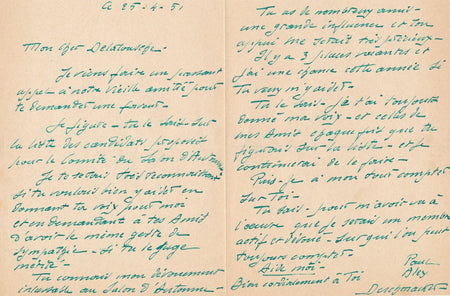 Ce 25-4-51
Mon cher Delatousche.
Je viens faire un pressant
appel à notre vieille amitié pour
te demander une faveur.
Je figure - tu le sais - sur
la liste des candidats proposés
pour le Comité du Salon d'Automne
Je te serai très reconnaissant
si tu voulais bien y aider en
donnant ta voix pour moi
et en demandant à tes amis
d'avoir le même geste de
sympathie - si tu le juge
mérité.
Tu connais mon dévouement
inlassable au Salon d'Automne -
Tu as de nombreux amis -
une grande influence et ton
appui me serait très précieux -
Il y a 3 places vacantes et
j'ai une chance cette année si
tu veux m'aider.
Tu le sais - je t'ai toujours
donné ma voix - et celles de
mes amis chaque fois que tu
figurais sur la liste - et je
continuerai de le faire -
Puis-je à mon tour compter
sur Toi -
Tu sais - pour m'avoir vu à
l'oeuvre que je serais un membre
actif et dévoué - sur qui l'on peut
toujours compter.
Aide moi -
Bien cordialement à Toi
Paul
Alex
Deschmacker